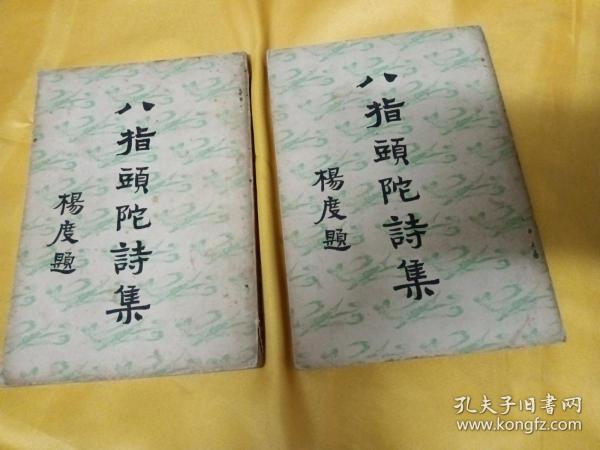 八指頭陀詩集
楊度題
八指頭陀詩集
楊度題
孔夫子旧書网
www.kongfz.com